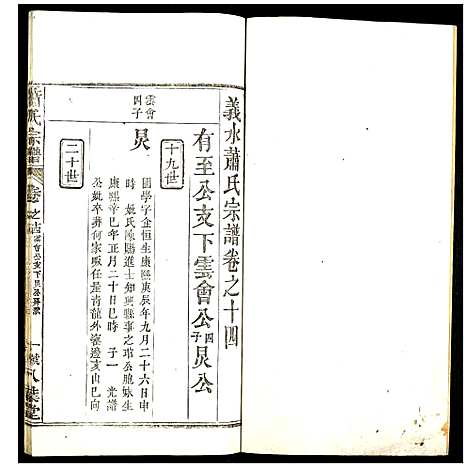 義水蕭氏宗譜卷之十四
有至公支下雲會公四子炅公
十九世
雲會四子
炅
國學字金恒生康熙庚辰年九月二十六日申
時 娶氏陳賜進士知興縣事之琯公胞妹生
康熙辛巳年正月二十日巳時 子一 光譜
公妣卒葬何家畈任是青龍外邊亥山巳向
二十世
蕭氏宗譜
卷之十四
雲會公支下炅公房
一
八葉堂